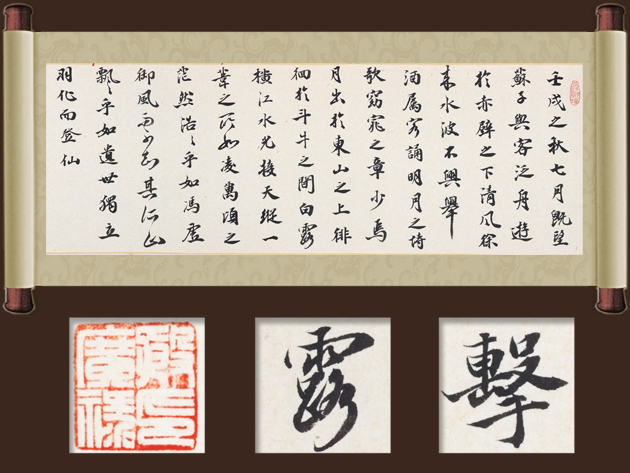 壬戌之秋七月既望
蘇子與客泛舟遊
於赤壁之下清風徐
來水波不興舉
酒屬客誦明月之詩
歌窈窕之章少焉
月出於東山之上徘
徊於斗牛之間白露
橫江水光接天縱一
葦之所如凌萬頃之
茫然浩〻乎如馮虛
御風而不知其所止
飄〻乎如遺世獨立
羽化而登仙
露
擊